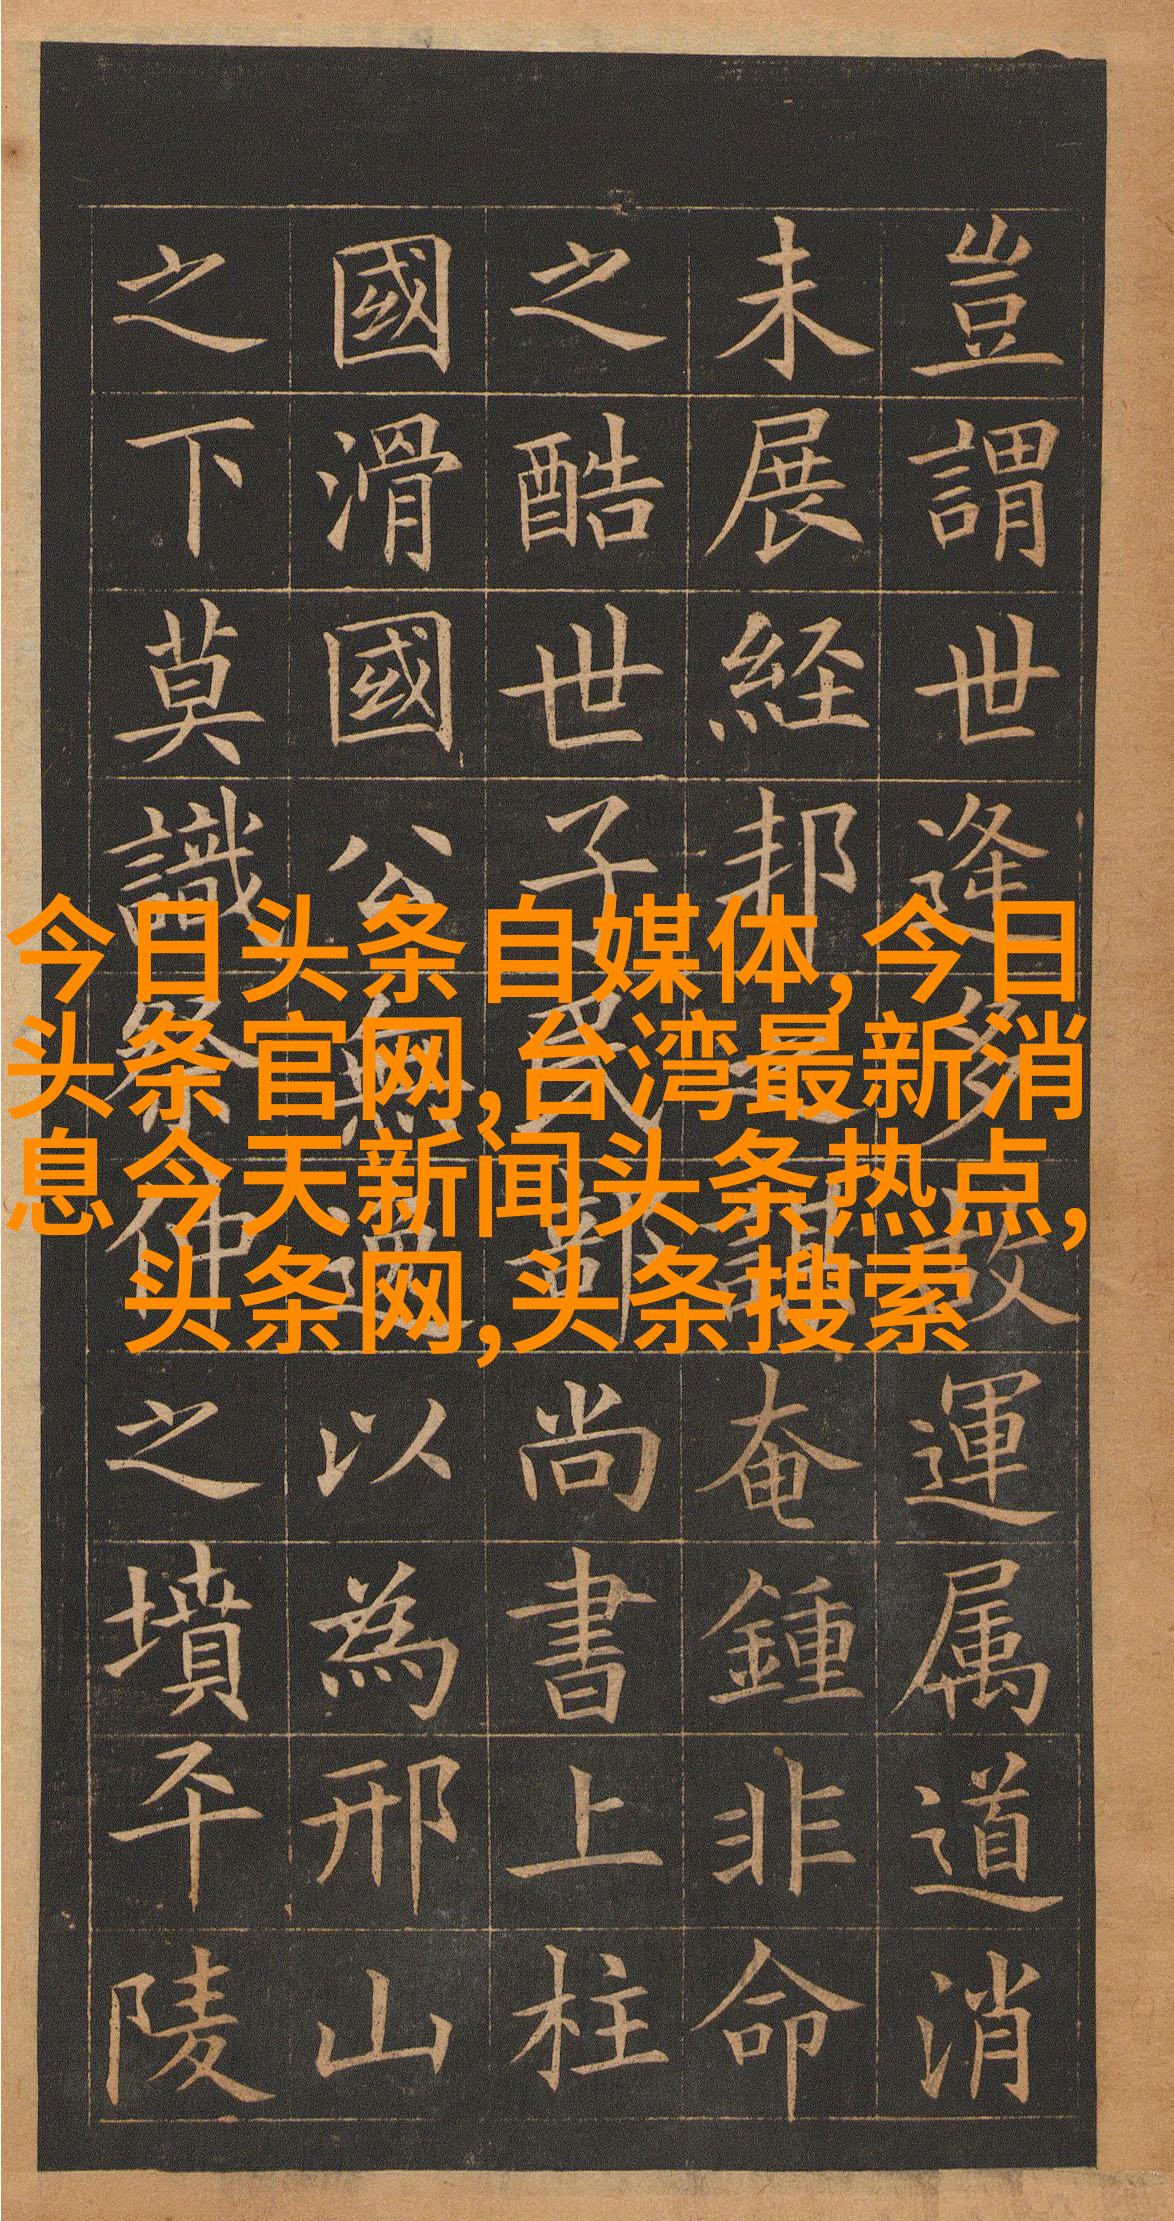 豈謂世逢多故運属道消
未展経邦之謀奄鍾非命
之酷世子民部尚書上柱
國滑國公無逸以為邢山
之下莫識祭仲之墳平陵
今日头条自媒体,今日
头条官网,台湾最新消
息今天新闻头条热点,
头条网,头条搜索